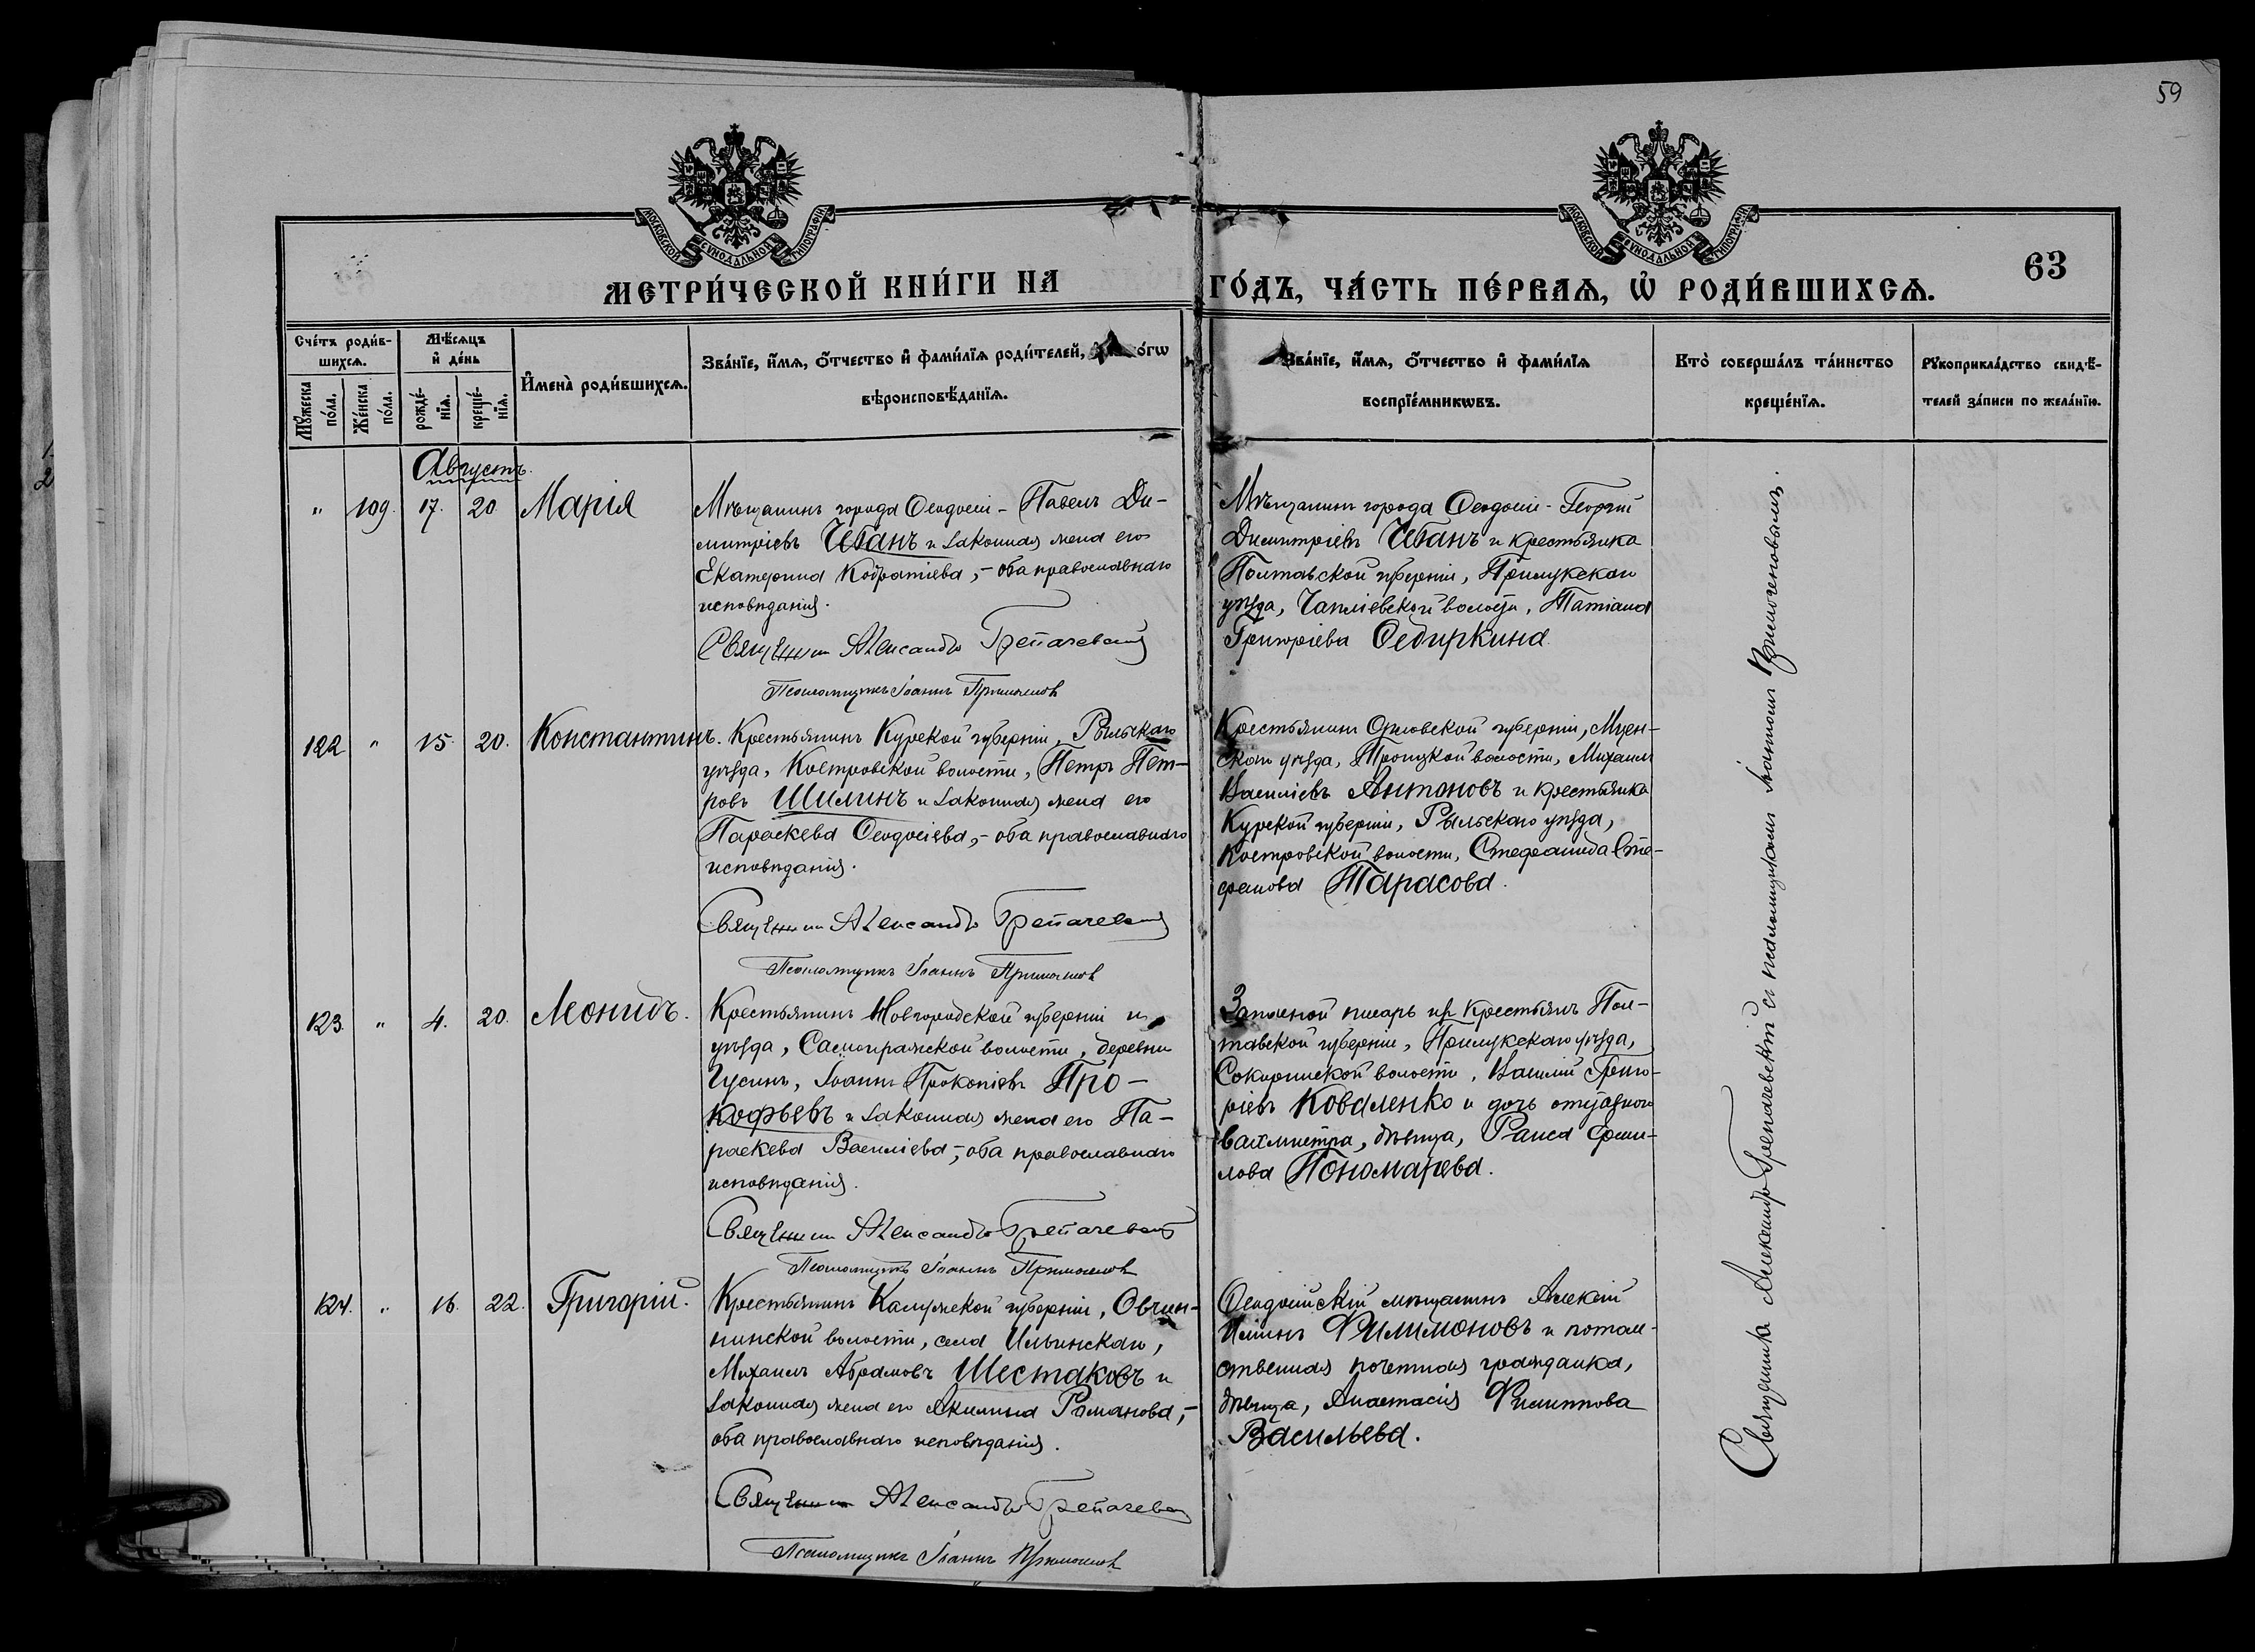 59
МОСКОВСКОЙ СѴНОДАЛЬНОЙ ТИПОГРАФІИ
МОСКОВСКОЙ СѴНОДАЛЬНОЙ ТИПОГРАФІИ
МЕТРИ́ЧЕСКОЙ КНИ́ГИ НА ГО́ДЪ, ЧА́СТЬ ПЕ́РВАѦ, Ѡ҆ РОДИ́ВШИХСѦ.
63
Сче́тъ роди́в-
шихсѧ.
Мꙋ́жеска по́ла.
Же́нска по́ла.
Мѣ́сѧцъ
и҆ де́нь
рожде́-
нїѧ.
креще́-
нїѧ.
И҆мена̀ роди́вшихсѧ.
Зва́нїе, и҆́мѧ, ѻ҆́тчество и҆ фами́лїѧ роди́телей,
вѣроисповѣ́данїѧ.
Зва́нїе, и҆́мѧ, ѻ҆́тчество и҆ фами́лїѧ
воспрїе́мникѡвъ.
Кто̀ соверша́лъ та́инство
креще́нїѧ.
Рꙋкоприкла́дство свидѣ́-
телей за́писи по жела́нїю.
Августъ.
" 109. 17. 20 Марія
Мѣщанинъ города Ѳеодосіи - Павелъ Ди-
митріевъ Чебанъ и законная жена его
Екатерина Кодратіева, - оба православнаго
исповѣданія.
Священникъ Александръ
Псаломщикъ Іоаннъ
Мѣщанинъ города Ѳеодосіи - Георгій
Димитріевъ Чебанъ и крестьянка
Полтавской губерніи, Прилукскаго
уѣзда, волости, Татіана
Григоріева
122 " 15. 20. Константинъ.
Крестьянинъ Курской губерніи, Рыльскаго
уѣзда, Костровской волости, Петръ Пет-
ровъ Шилинъ и законная жена его
Параскева Ѳеодосіева, - оба православнаго
исповѣданія.
Священникъ Александръ
Псаломщикъ Іоаннъ
Крестьянинъ Орловской губерніи, Мцен-
скаго уѣзда, Троицкой волости, Михаилъ
Василіевъ Антоновъ и крестьянка
Курской губерніи, Рыльскаго уѣзда,
Костровской волости, Стефанида Сте-
фанова Тарасова.
123. " 4. 20. Леонидъ.
Крестьянинъ Новгородской губерніи и
уѣзда, волости, деревни
Іоаннъ Прокопіевъ Про-
кофьевъ и законная жена его Па-
раскева Василіева, - оба православнаго
исповѣданія.
Священникъ Александръ
Псаломщикъ Іоаннъ
писарь изъ крестьянъ Пол-
тавской губерніи, Прилукскаго уѣзда,
Сокиринской волости, Василій Григо-
ріевъ Коваленко и дочь
вахмистра, дѣвица, Раиса
Пономарева.
124. " 16. 22. Григорій.
Крестьянинъ Калужской губерніи, Овчин-
нинской волости, села Ильинскаго,
Михаилъ Абрамовъ Шестаковъ и
законная жена его Акилина Романова, -
оба православнаго исповѣданія.
Священникъ Александръ
Псаломщикъ Іоаннъ
Ѳеодосійскій мѣщанинъ Алексій
Ильинъ Филимоновъ и потом-
ственная почетная гражданка,
дѣвица, Анастасія Филиппова
Васильева.
Священникъ Александръ съ псаломщикомъ Іоанномъ